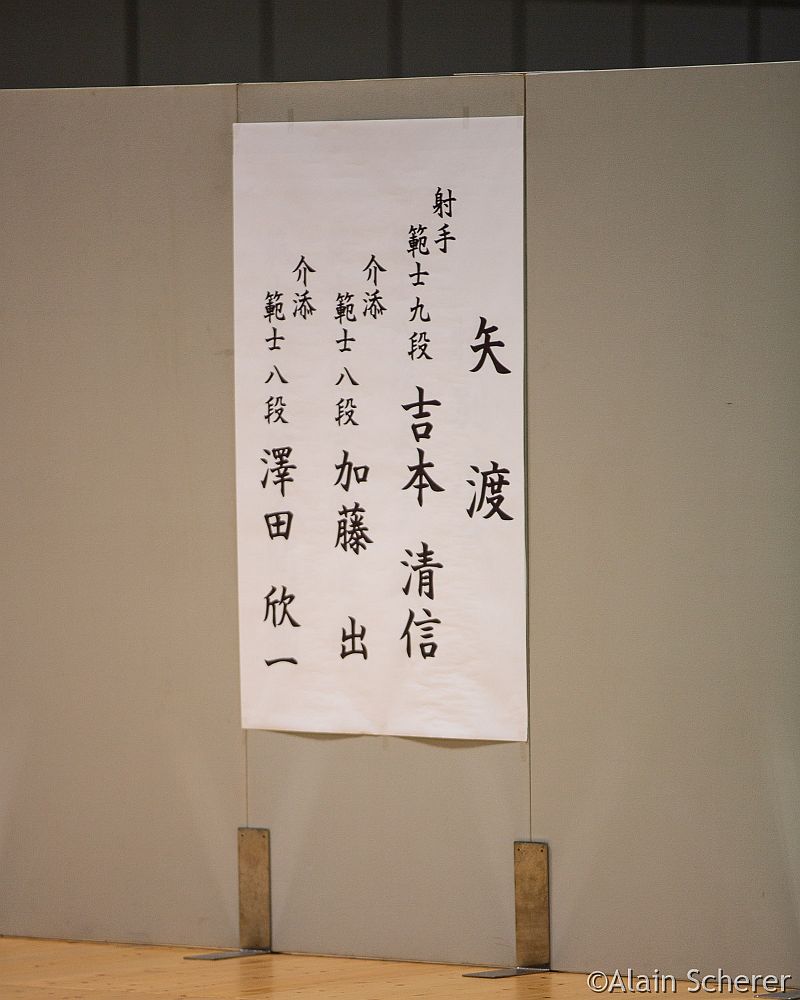 矢渡
射手
範士九段 吉本 清信
介添
範士八段 加藤 出
介添
範士八段 澤田 欣一
©Alain Scherer